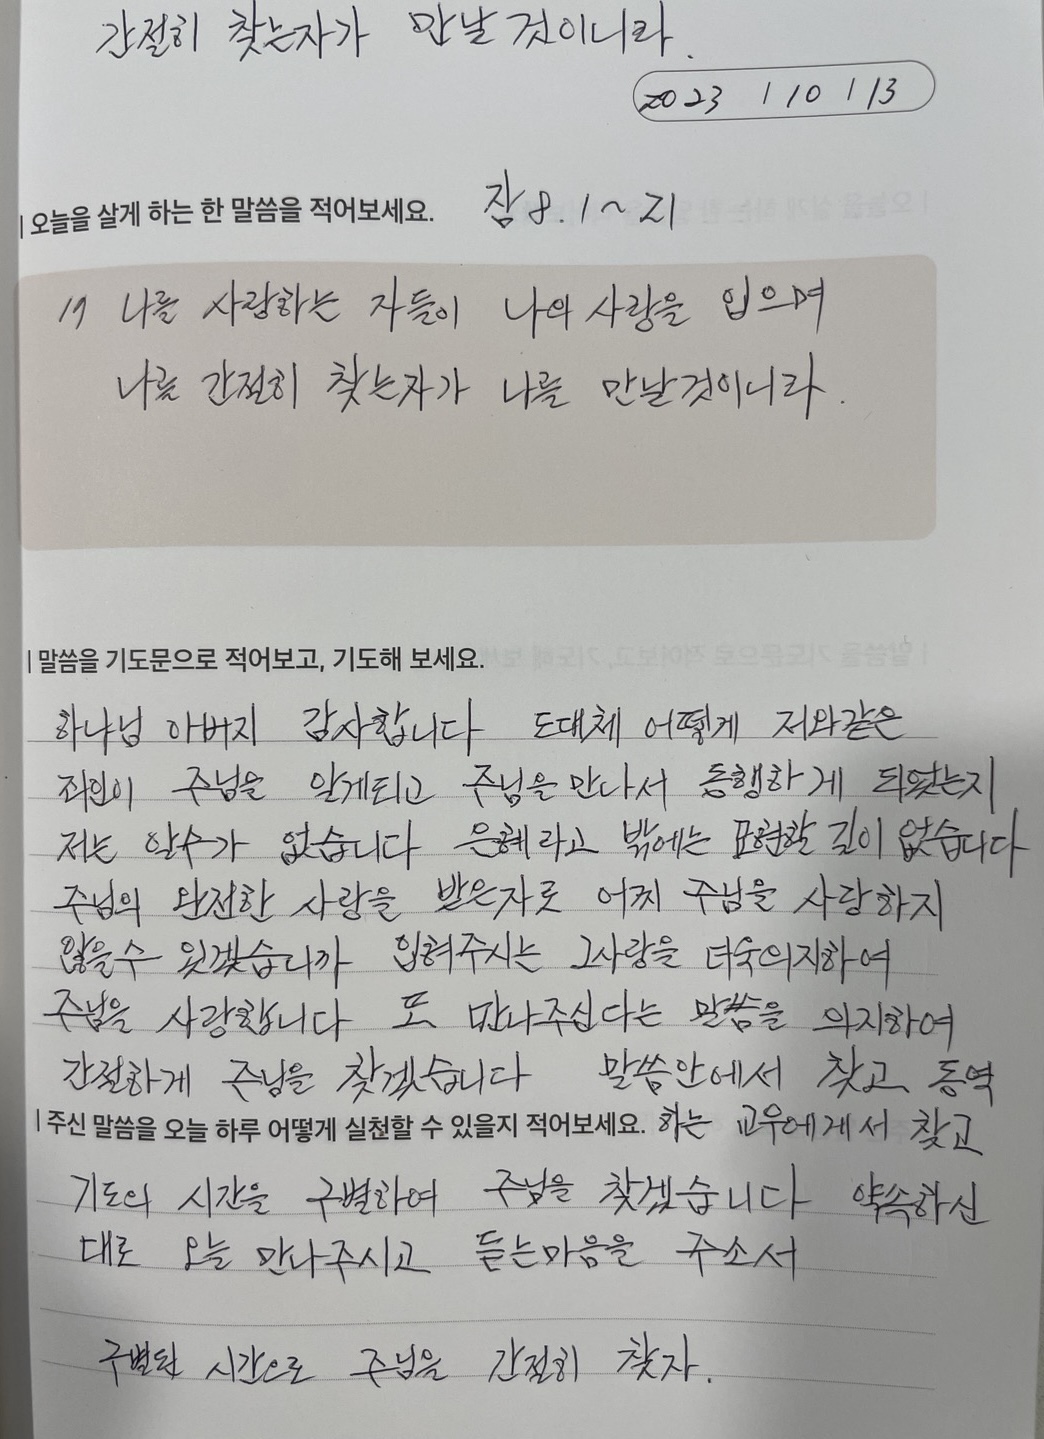 간절히 찾는자가 만날 것이니라.
2023 / 10 / 13
| 오늘을 살게 하는 한 말씀을 적어보세요. 잠 8. 1~21
17 나를 사랑하는 자들이 나의 사랑을 입으며
나를 간절히 찾는자가 나를 만날것이니라.
| 말씀을 기도문으로 적어보고, 기도해 보세요.
하나님 아버지 감사합니다 도대체 어떻게 저와같은
죄인이 주님을 알게되고 주님을 만나서 동행하게 되었는지
저는 알수가 없습니다 은혜라고 밖에는 표현할 길이 없습니다
주님의 완전한 사랑을 받은자로 어찌 주님을 사랑하지
않을수 있겠습니까 입혀주시는 그사랑을 더욱의지하여
주님을 사랑합니다 또 만나주신다는 말씀을 의지하여
간절하게 주님을 찾겠습니다 말씀안에서 찾고 동역
| 주신 말씀을 오늘 하루 어떻게 실천할 수 있을지 적어보세요. 하는 교우에게서 찾고
기도의 시간을 구별하여 주님을 찾겠습니다 약속하신
대로 오늘 만나주시고 듣는마음을 주소서
구별된 시간으로 주님을 간절히 찾자.